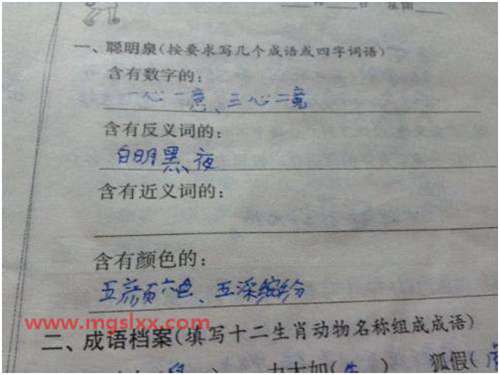 一、聪明泉(按要求写几个成语或四字词语)
含有数字的:
一心一意、三心二意
含有反义词的:
白明黑夜
含有近义词的:
含有颜色的:
五颜六色、五深缤纷
www.mgslxx.com
二、成语档案(填写十二生肖动物名称组成成语)
力大如(牛) 狐假(